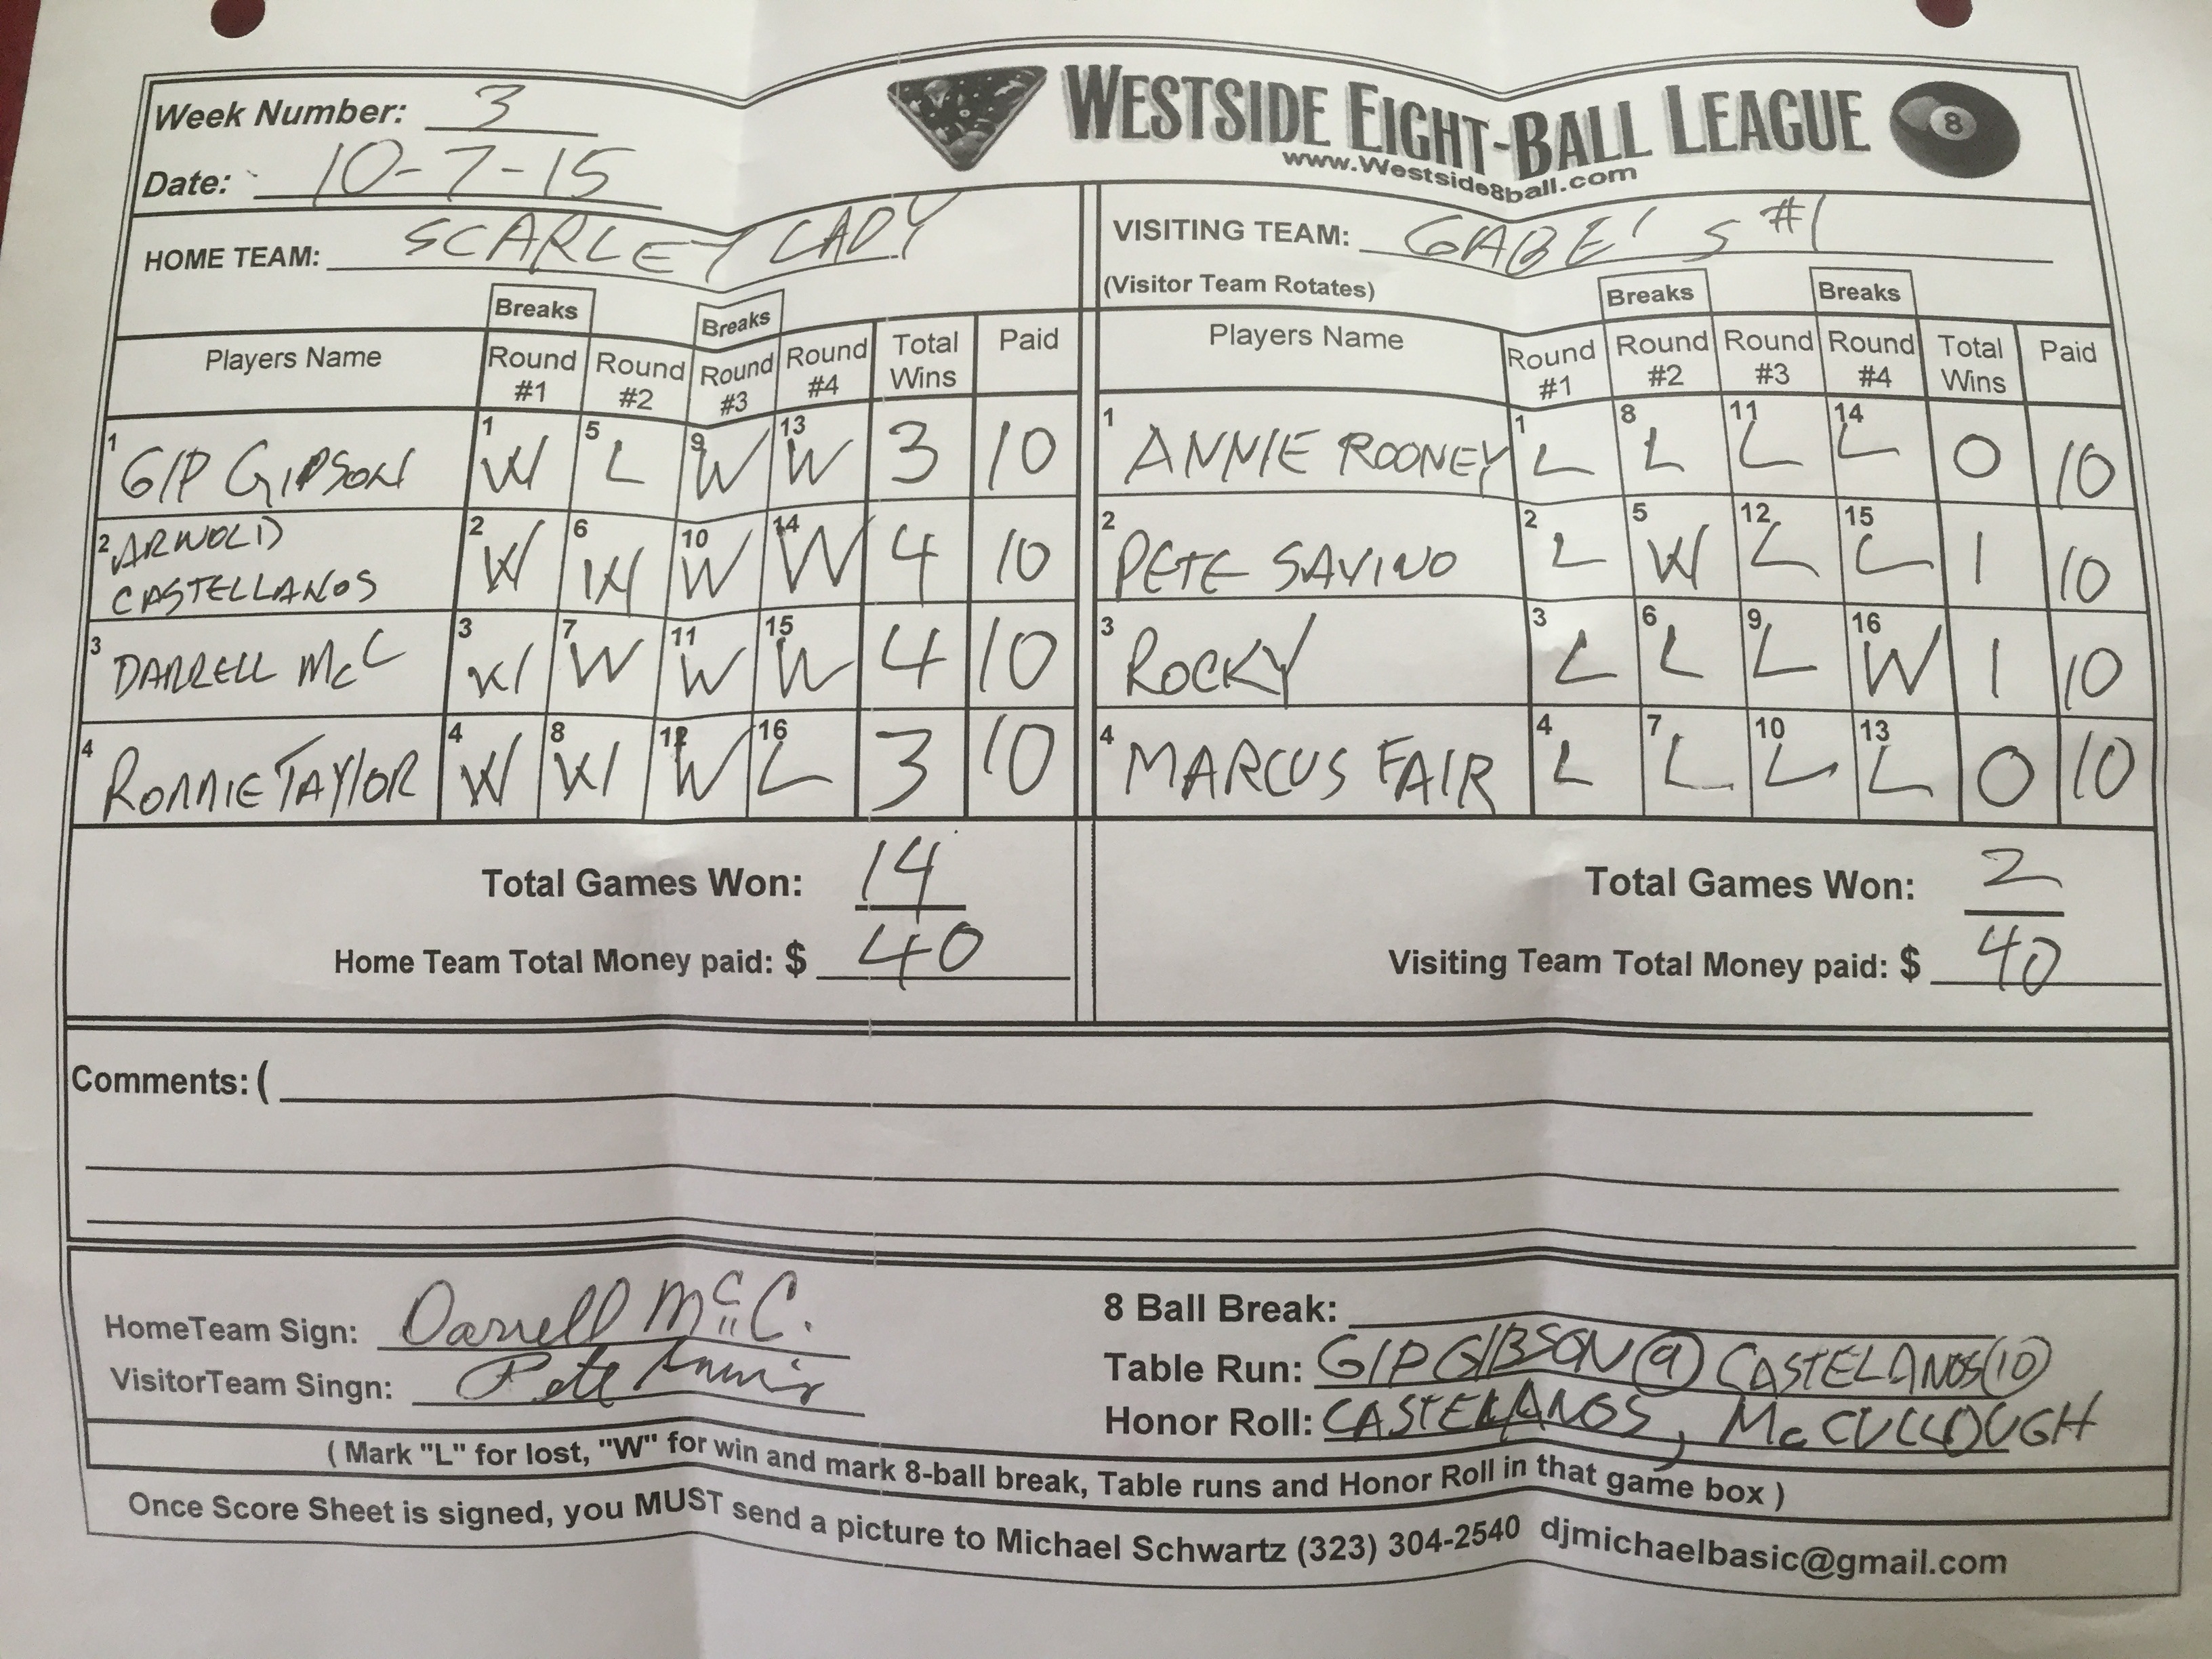 Week Number: 3
WESTSIDE EIGHT-BALL LEAGUE 8
www.Westside8ball.com
Date: 10-7-15
HOME TEAM: SCARLEY LADY
VISITING TEAM: GABE'S #1
(Visitor Team Rotates)
Breaks Breaks Breaks Breaks
Players Name Round #1 Round #2 Round #3 Round #4 Total Wins Paid
Players Name Round #1 Round #2 Round #3 Round #4 Total Wins Paid
1 GIP GIPSON 1 W 5 L 9 W 13 W 3 10
1 ANNIE ROONEY 1 L 8 L 11 L 14 L 0 10
2 ARNOLD CASTELLANOS 2 W 6 W 10 W 14 W 4 10
2 PETE SAVINO 2 L 5 W 12 L 15 L 1 10
3 DARRELL McC 3 W 7 W 11 W 15 W 4 10
3 ROCKY 3 L 6 L 9 L 16 W 1 10
4 RONNIE TAYLOR 4 W 8 W 12 W 16 L 3 10
4 MARCUS FAIR 4 L 7 L 10 L 13 L 0 10
Total Games Won: 14
Total Games Won: 2
Home Team Total Money paid: $ 40
Visiting Team Total Money paid: $ 40
Comments: (
HomeTeam Sign: Darrell McC.
VisitorTeam Singn: Pete
8 Ball Break:
Table Run: GIP GIBSON (9) CASTELANOS (10)
Honor Roll: CASTELANOS, McCULLOUGH
( Mark "L" for lost, "W" for win and mark 8-ball break, Table runs and Honor Roll in that game box )
Once Score Sheet is signed, you MUST send a picture to Michael Schwartz (323) 304-2540 djmichaelbasic@gmail.com